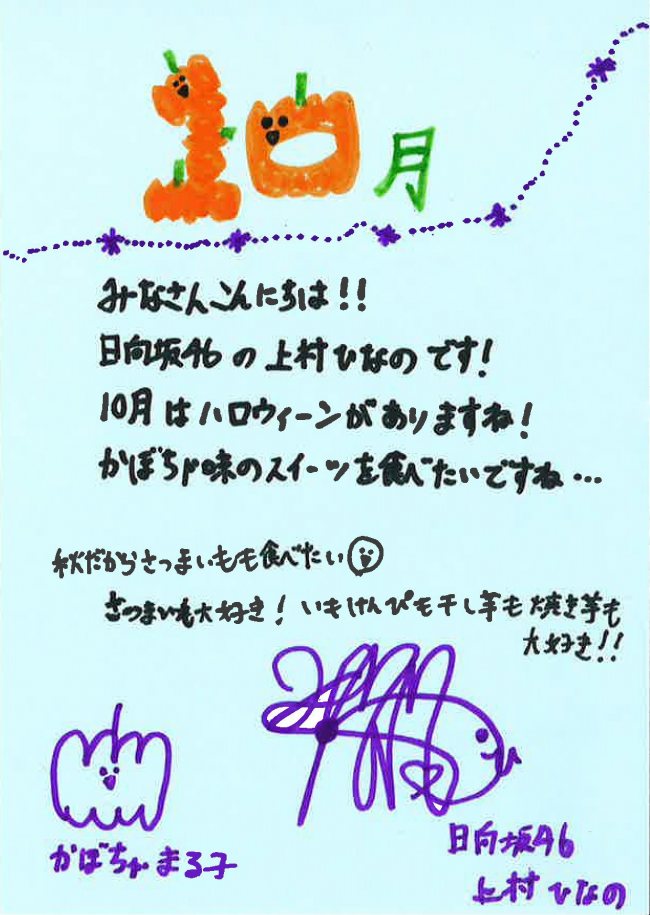 10月
みなさんこんにちは!!
日向坂46の上村ひなのです!
10月はハロウィーンがありますね!
かぼちゃ味のスイーツを食べたいですね…
秋だからさつまいもも食べたい
さつまいも大好き!いもけんぴも干し芋も焼き芋も
大好き!!
かぼちゃまる子
日向坂46
上村ひなの